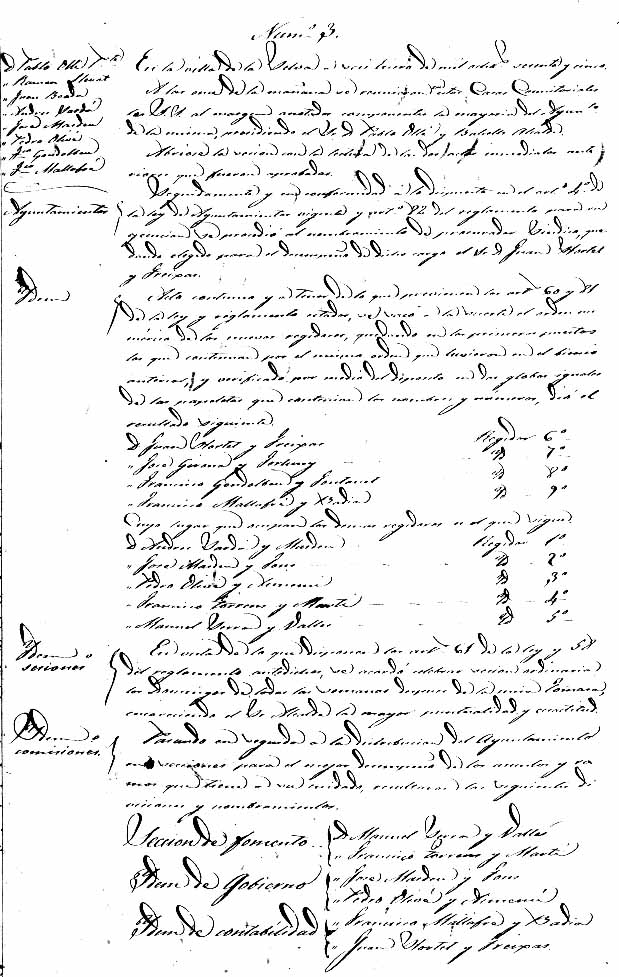 Num.º 3.
D. Pablo Ollé Pte
" Ramon
" Juan Boada
" Pedro Verdú
" José Marden
" Pedro Olivé
" Fco Gondolbeu
" Fco Mallofré
En la villa de la Selva a veci de mil ochos sesenta y cinco.
A las once de la mañana se reunieron estas Casas Consistoriales
los S.S. al margen anotados componentes la mayoria del Ayunto
de la misma, presidido el Sr D. Pablo Ollé y Batalla Alcalde.
Abriose la sesion con la lectura de las dos actas inmediatas ante
riores que fueron aprobadas.
Ayuntamientos
Seguidamente y en conformidad a lo dispuesto en el artº 4º de
la ley de Ayuntamientos vigente y artº 82 del reglamento para su
ejecucion se procedió al nombramiento de procurador Sindico, que
dando elegido para el desempeño de dicho cargo el Sr D. Juan
y Freixas.
Idem
Acto continuo y a tenor de lo que previenen los arts 60 y 81
de la ley y reglamento citados, se sacó a la suerte el orden nu
mérico de los nuevos regidores, quedando en los primeros puestos
los que continuan por el mismo orden que tuvieron en el bienio
anterior, y verificado por medio del deposito en dos globos iguales
de las papeletas que contenian los nombres y números, dió el
resultado siguiente.
D. Juan y Freixas Regidor 6º
" José Gerona y Id 7º
" Francisco Gondolbeu y Fontanet Id 8º
" Francisco Mallofré y Badia Id 9º
Cuyo lugar que ocupan los demas regidores es el que sigue.
D. Andres Verdú y Marden Regidor 1º
" José Marden y Id 2º
" Pedro Olivé y Id 3º
" Francisco Farreras y Martí Id 4º
" Manuel y Vallés Id 5º
Idem o
sesiones
En vista de lo que disponen los arts 61 de la ley y 58
del reglamento antedichos, se acordó celebrar sesion ordinaria
los Domingos de todas las semanas despues de la misa
encareciendo el Sr Alcalde la mayor puntualidad y
Idem o
comisiones.
Pasando en seguida a la distribucion del Ayuntamiento
en secciones para el mejor desempeño de los asuntos y ra
mos que tiene a su cuidado, resultaron las siguientes di
visiones y nombramientos.
Seccion de fomento D. Manuel y Vallés
" Francisco Farreras y Martí
Idem de Gobierno " José Marden y
" Pedro Olivé y
Idem de contabilidad " Francisco Mallofré y Badia
" Juan y Freixas.